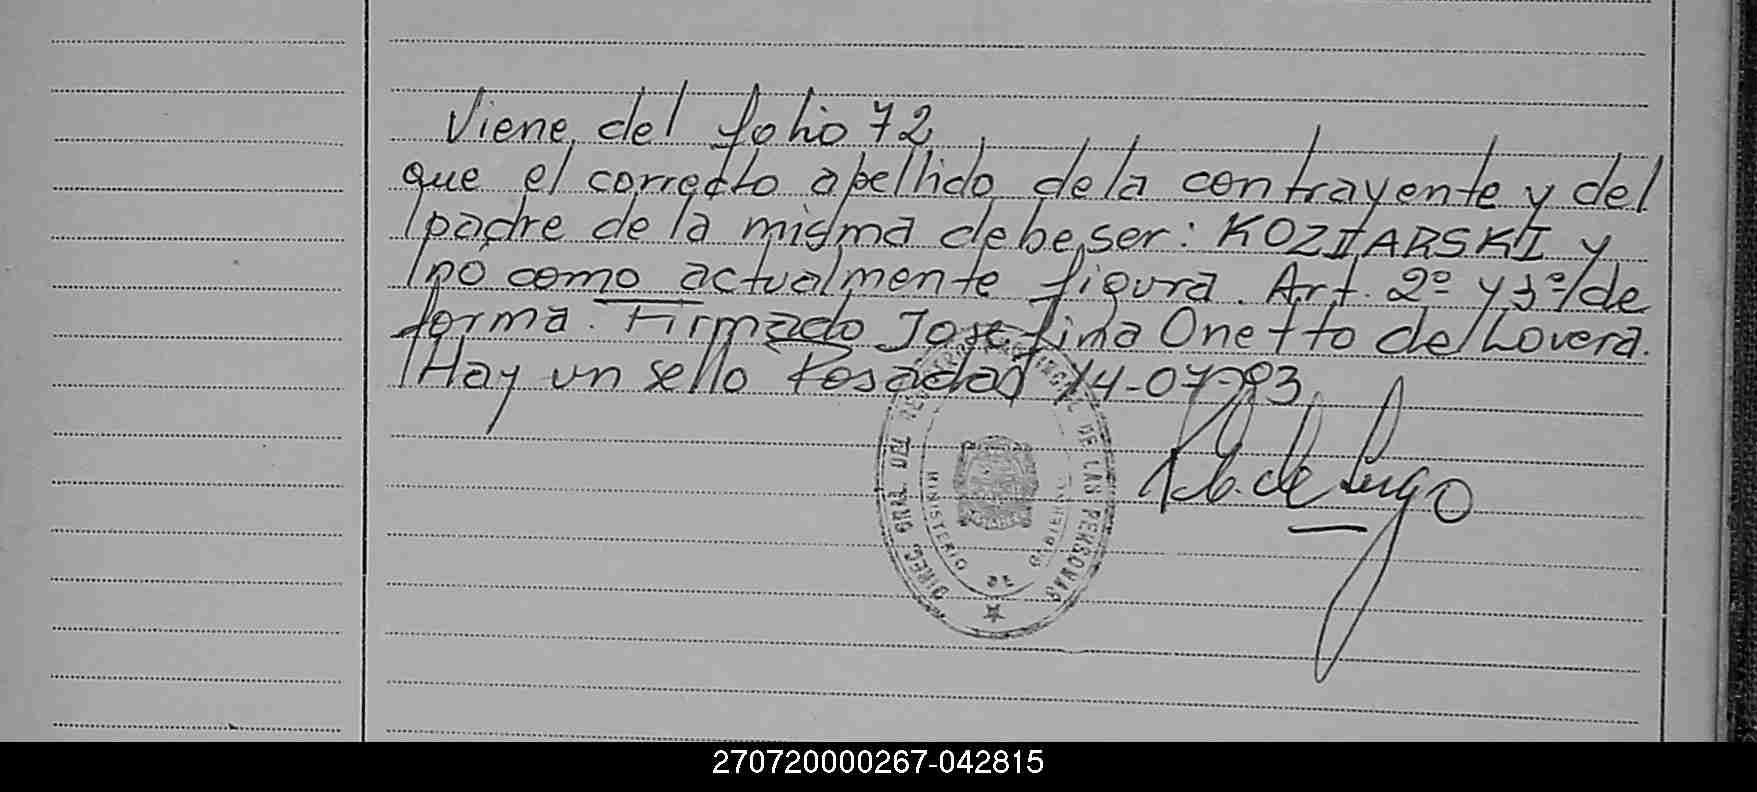 Viene del folio 72
que el correcto apellido de la contrayente y del
padre de la misma debe ser: KOZIARSKI y
no como actualmente figura. Art. 2º y 3º/de
forma. Firmado Josefina Onetto de Lovera.
Hay un sello Posadas 14-07-83
DIREC. GRAL. DEL REG. PROVINCIAL DE LAS PERSONAS
MINISTERIO DE GOBIERNO
de Lugo
270720000267-042815